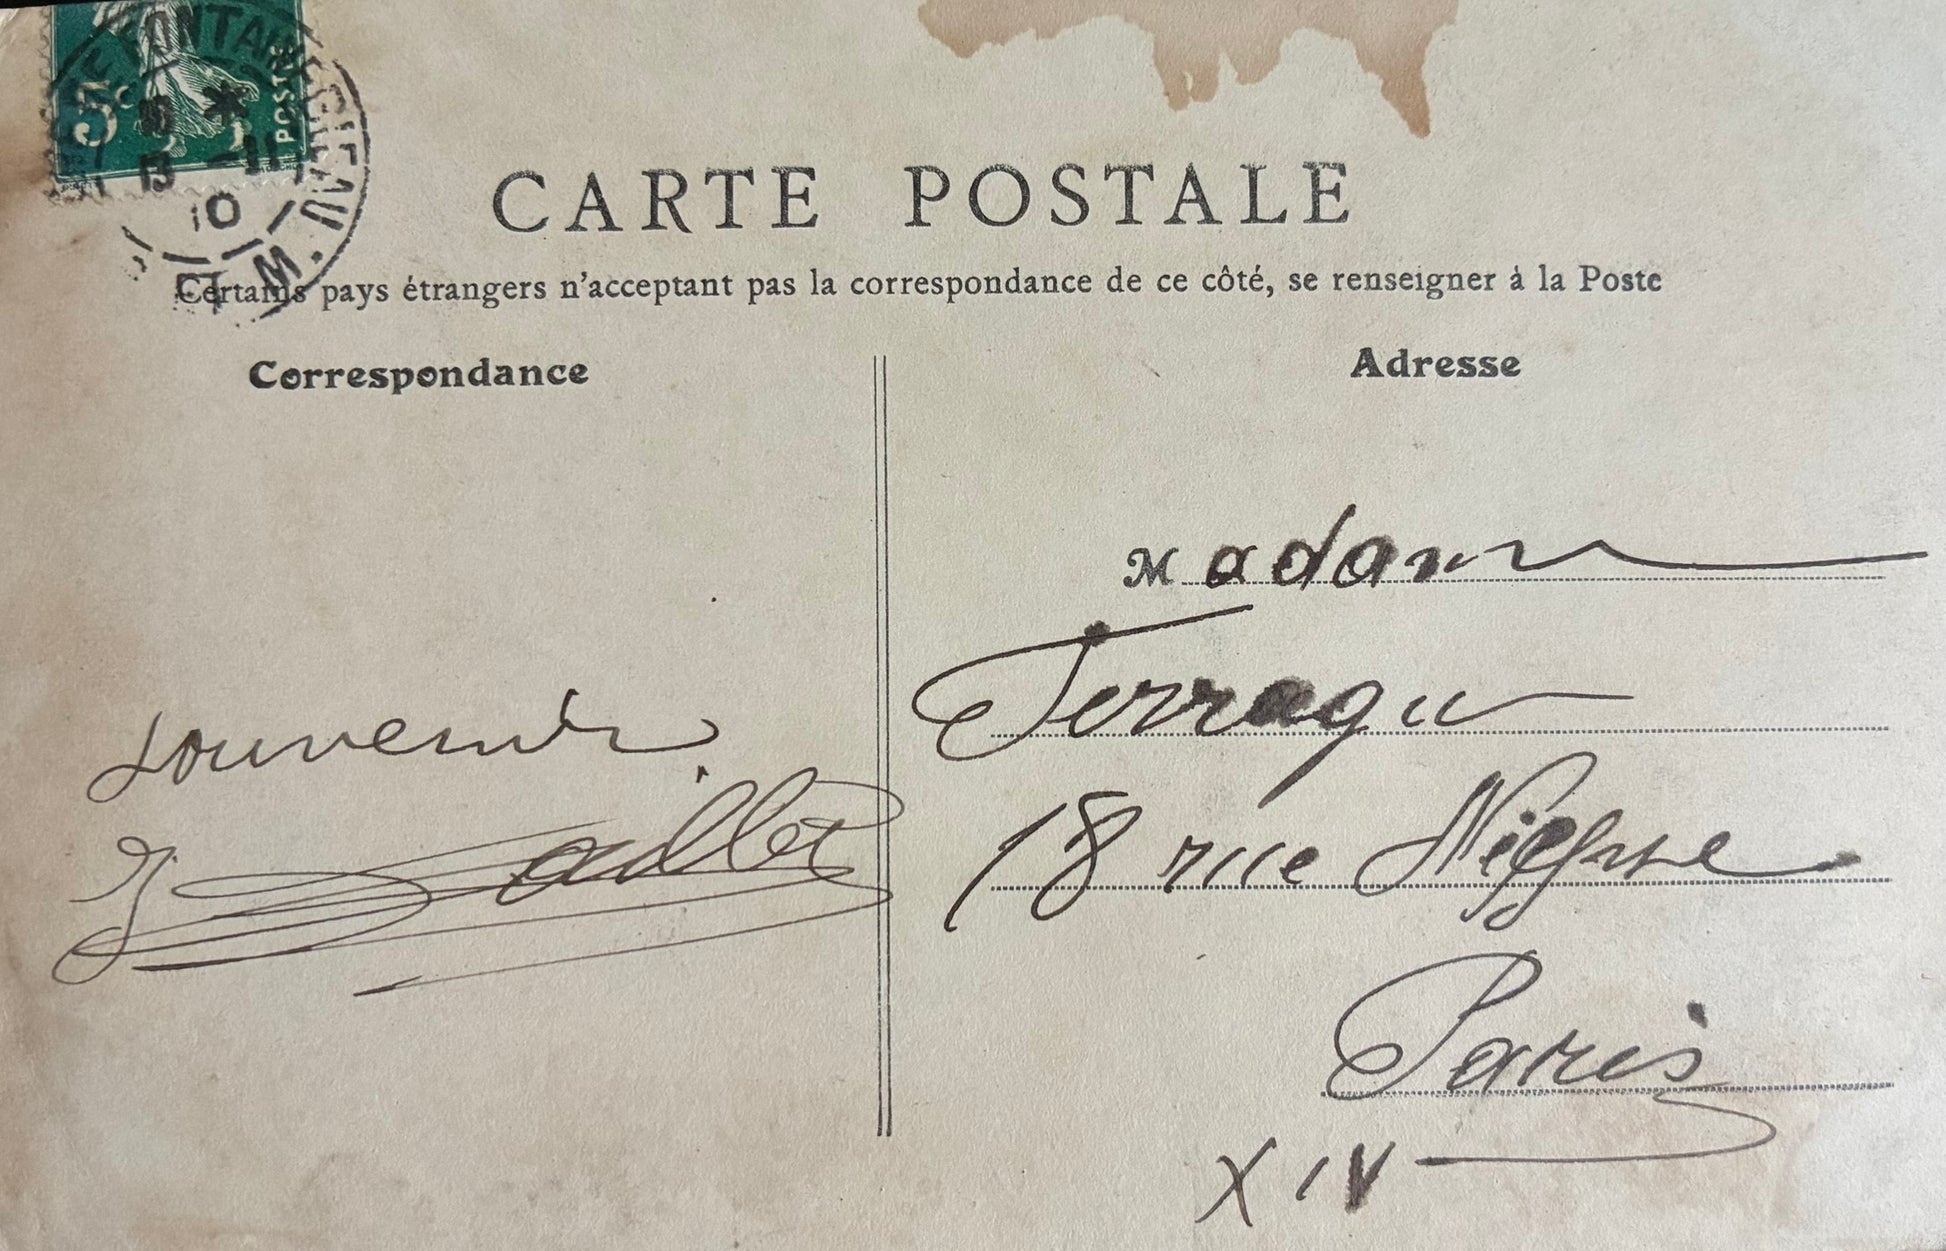 5c
POSTES
FONTAINEBLEAU
-11
10
CARTE POSTALE
Certains pays étrangers n'acceptant pas la correspondance de ce côté, se renseigner à la Poste
Correspondance
Adresse
Madame
Ferragu
18 rue Niepce
Paris
XIV
souvenir